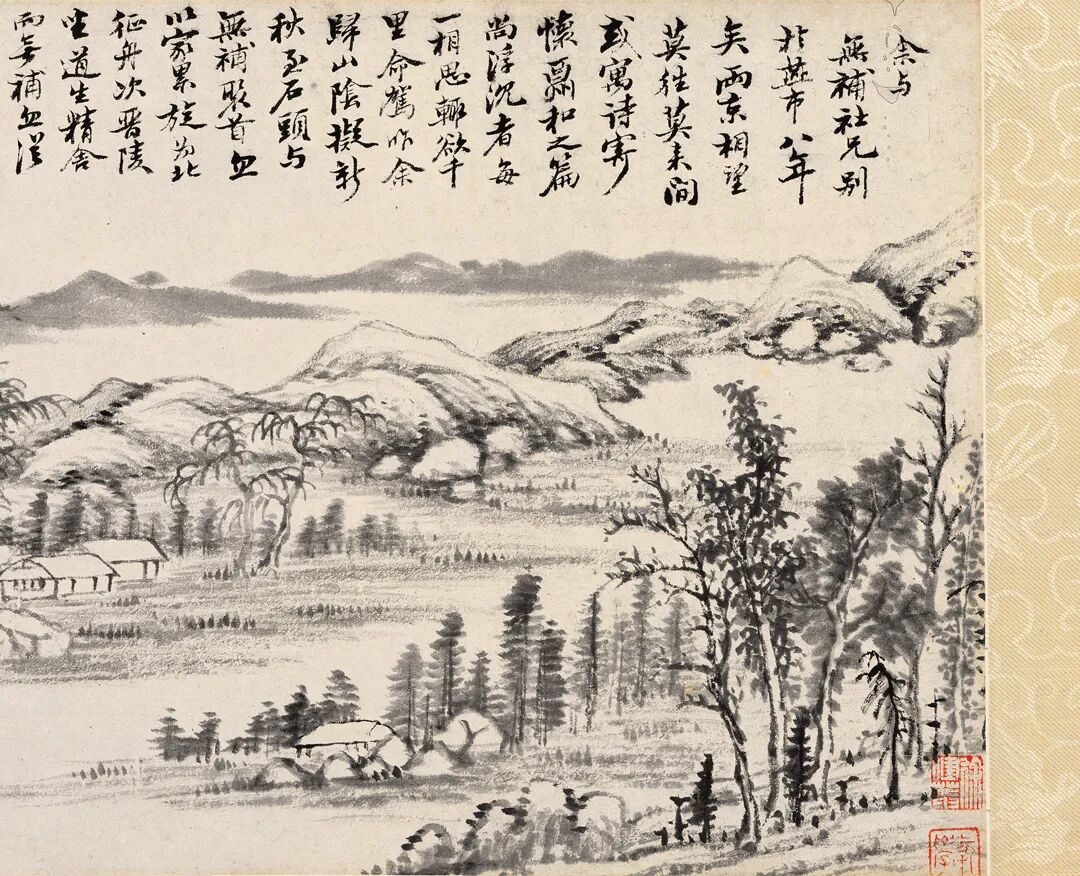 余与
無補社兄别
於燕市八年
矣兩京相望
莫往莫來間
或寓诗寄
懷和之篇
尚浮沉者每
一相思輒欲千
里命駕昨余
歸山陰擬新
秋至石頭与
無補聚首
以家累旋为北
征舟次晋陵
坐道生精舍
而無補